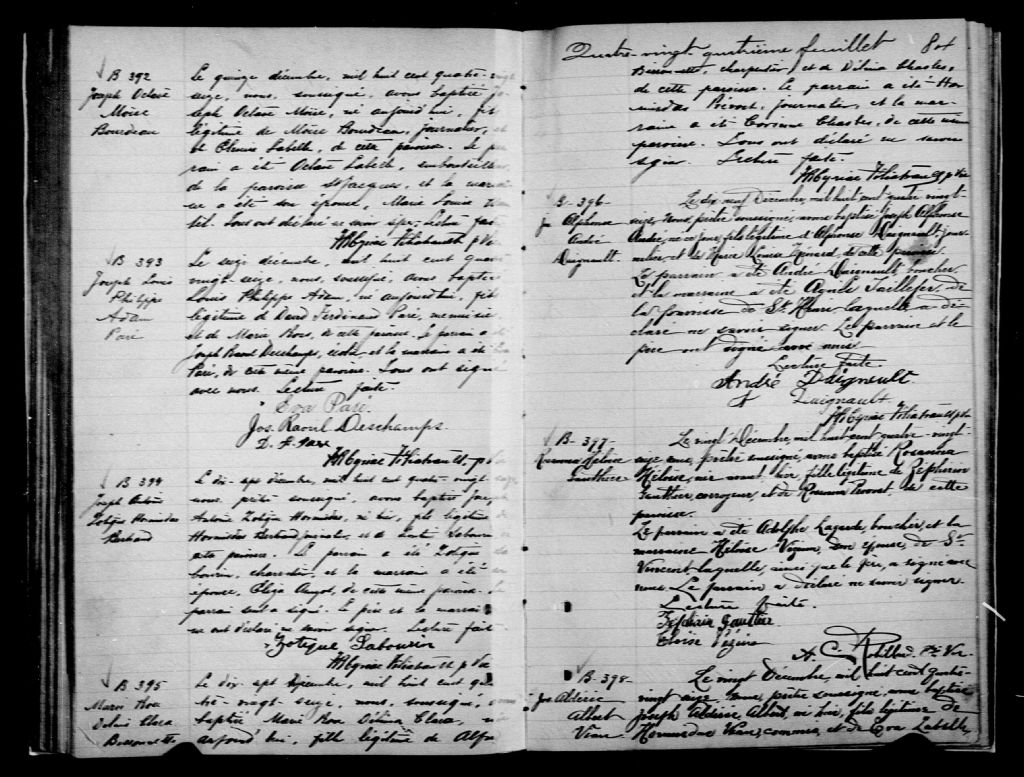 B 392
Joseph Octave
Moïse
Bourdeau
Le quinze décembre, mil huit cent quatre-vingt
seize, nous, soussigné, avons baptisé Jo-
seph Octave Moïse, né aujourd'hui, fils
légitime de Moïse Bourdeau, journalier, et
de Labelle, de cette paroisse. Le par-
rain a été Octave Labelle, embouteilleur
de la paroisse St Jacques, et la marrai-
ne a été son épouse, Marie Louise
Tous ont déclaré ne savoir signer. Lecture faite
B 393
Joseph Louis
Philippe
Adam
Paré
Le seize décembre, mil huit cent quatre
vingt-seize, nous, soussigné, avons baptisé
Louis Philippe Adam, né aujourd'hui, fils
légitime de David Ferdinand Paré, menuisier
et de Marie Rose, de cette paroisse. Le parrain a été
Joseph Raoul Deschamps, et la marraine a été Eva
Paré, de cette même paroisse. Tous ont signé
avec nous. Lecture faite.
Eva Paré
Jos. Raoul Deschamps.
D. F. Paré
B 394
Joseph Antoine
Zotique Hormisdas
Bertrand
Le dix-sept décembre, mil huit cent quatre-vingt-seize
nous prêtre soussigné, avons baptisé Joseph
Antoine Zotique Hormisdas, né hier, fils légitime de
Hormisdas Bertrand, et de
cette paroisse. Le parrain a été Zotique La-
bourin, charretier, et la marraine a été son
épouse, Eliza de cette même paroisse. Le
parrain seul a signé. Le père et la marrai-
ne ont déclaré ne savoir signer. Lecture faite
Zotique Labourin
B 395
Marie Rose
Délina Clara
Bissonnette
Le dix-sept décembre, mil huit cent qua-
tre-vingt-seize, nous, soussigné, avons
baptisé Marie Rose Délina Clara, née
aujourd'hui, fille légitime de Alfred
Quatre-vingt-quatrième feuillet 84
Bissonnette, charpentier, et de Délina Charles,
de cette paroisse. Le parrain a été Hor-
misdas Prévost, journalier, et la mar-
raine a été Corinne Charles, de cette même
paroisse. Tous ont déclaré ne savoir
signer. Lecture faite.
B-396-
Js Alphonse
André
Daignault
Le dix neuf Décembre, mil huit cent quatre vingt-
seize, nous, prêtre soussigné, avons baptisé Joseph Alphonse
André, né ce jour, fils légitime d'Alphonse Daignault, jour-
nalier, et de Marie Louise de cette paroisse.
Le parrain a été André Daignault boucher,
et la marraine a été Agnès Taillefer de
la paroisse de St. Henri, laquelle a dé-
claré ne savoir signer. Le parrain et le
père ont signé avec nous
Lecture faite
André Daignault.
Daignault
B-397-
Rosanna Héloïse
Gauthier
Le vingt Décembre, mil huit cent quatre-vingt-
seize nous, prêtre soussigné, avons baptisé Rosanna
Héloïse, née avant hier, fille légitime de Zéphirin
Gauthier, corroyeur, et de Rosanna Provost, de cette
paroisse.
Le parrain a été Adolphe boucher, et la
marraine Héloïse son épouse, de St-
Vincent laquelle, ainsi que le père, a signé avec
nous. Le parrain a déclaré ne savoir signer.
Lecture faite.
Zéphirin Gauthier
Eloïse Vézina
B-398-
Jos Aldéric
Albert
Le vingt Décembre, mil huit cent quatre-
vingt seize, nous, prêtre soussigné, avons baptisé
Joseph Aldéric Albert, né hier, fils légitime de
Hormisdas commis, et de Eva Labelle,